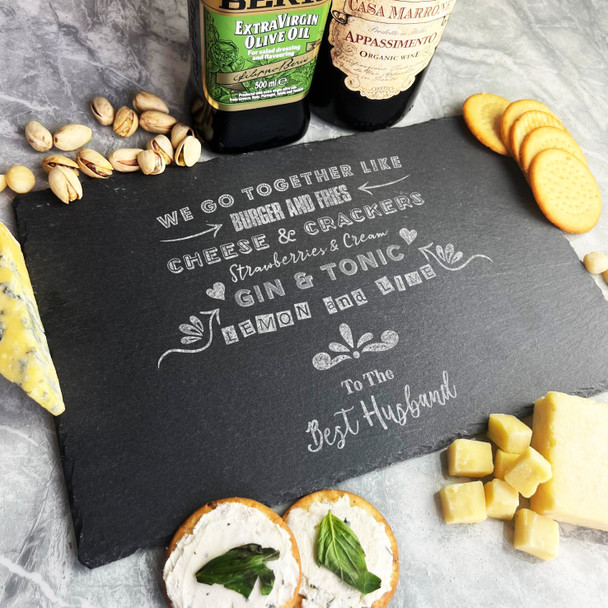 BERI
EXTRA VIRGIN
OLIVE OIL
For salad dressing
and flavouring
500 ml e
CASA MARRONE
APPASSIMENTO
ORGANIC WINE
WE GO TOGETHER LIKE
BURGER AND FRIES
CHEESE & CRACKERS
Strawberries & Cream
GIN & TONIC
LEMON and LIME
To The
Best Husband